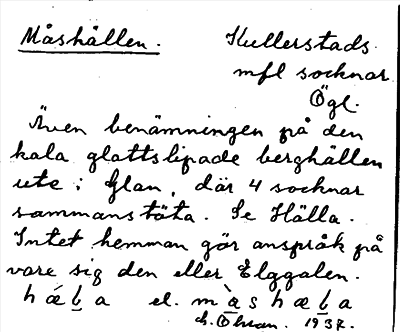 Måshällen. Kullerstads
mfl socknar
Ögl.
Även benämningen på den
kala glattslipade berghällen
ute i Glan, där 4 socknar
sammanstöta. Se Hälla.
Intet hemman gör anspråk på
vare sig den eller Elggalen.
hæ̀ḷa el. mà̊shæḷa
Öhman. 1937.